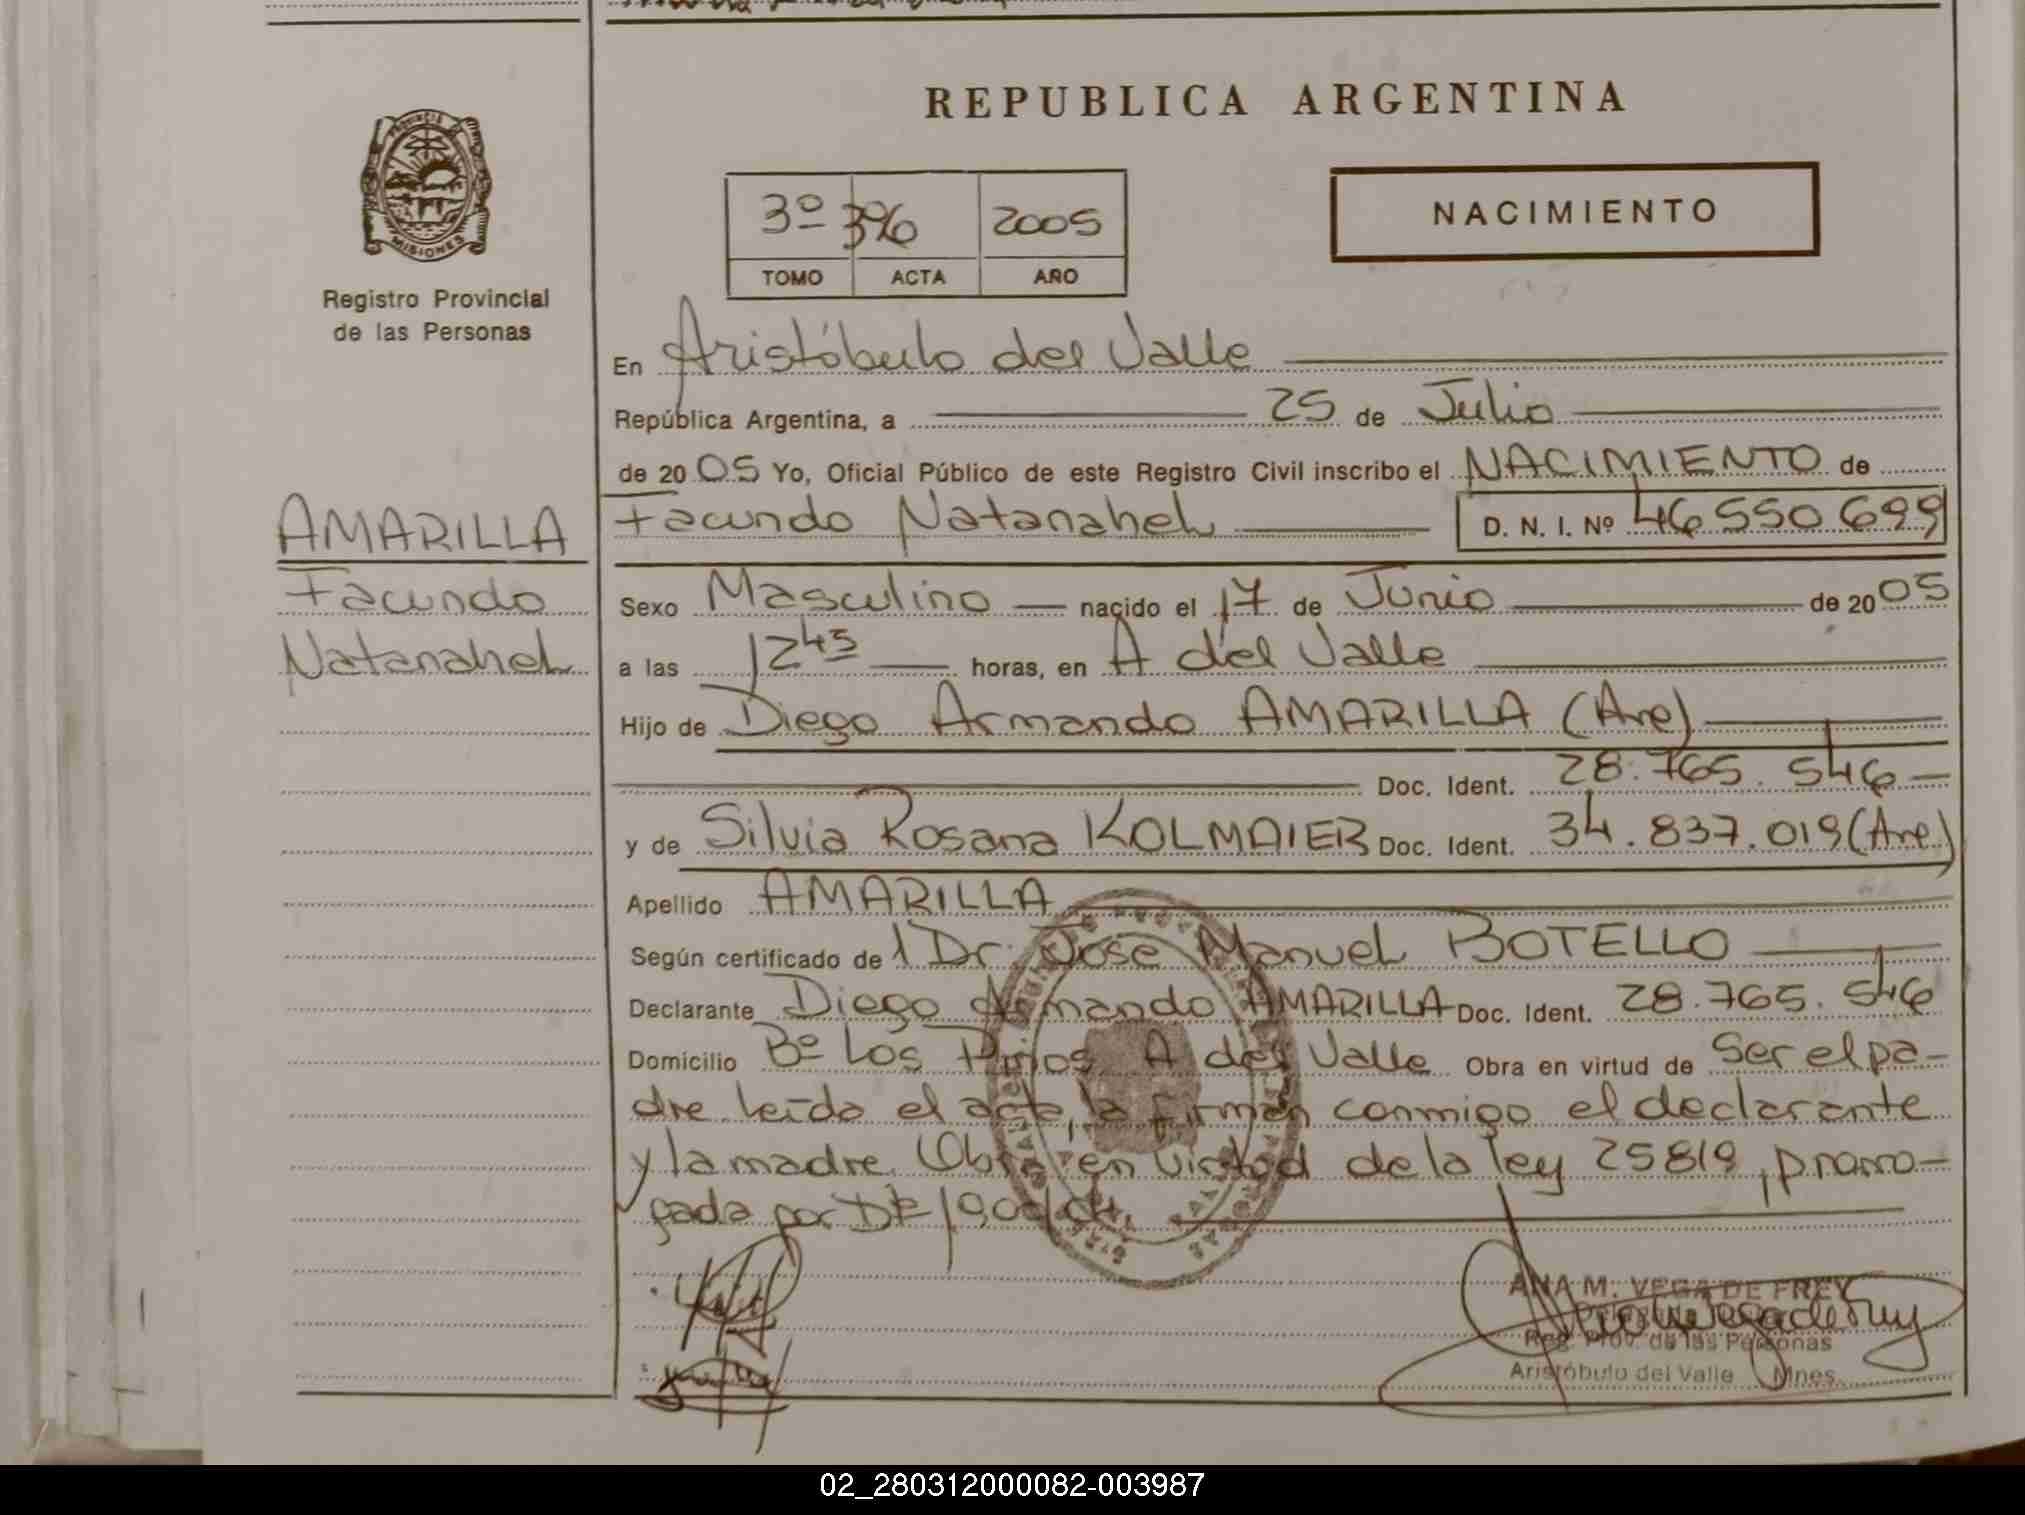 REPUBLICA ARGENTINA
PROVINCIA DE
MISIONES
Registro Provincial
de las Personas
3º 396 2005
TOMO ACTA AÑO
NACIMIENTO
En Aristóbulo del Valle
República Argentina, a 25 de Julio
de 2005 Yo, Oficial Público de este Registro Civil inscribo el NACIMIENTO de
AMARILLA
Facundo
Natanahel
Facundo Natanahel D. N. I. Nº 46550699
Sexo Masculino nacido el 17 de Junio de 2005
a las 12 45 horas, en A del Valle
Hijo de Diego Armando AMARILLA (Are)
Doc. Ident. 28.765.546
y de Silvia Rosana KOLMAIER Doc. Ident. 34.837.019 (Are)
Apellido AMARILLA
Según certificado de 1 Dr. Jose Manuel BOTELLO
Declarante Diego Armando AMARILLA Doc. Ident. 28.765.546
Domicilio Bº Los Pinos A del Valle Obra en virtud de Ser el pa-
dre leída el acta, la firman conmigo el declarante
y la madre. Obra en virtud de la ley 25819, prorro-
gada por
ANA M. VEGA DE FREY
Reg. Prov. de las Personas
Aristóbulo del Valle Mnes.
02_280312000082-003987